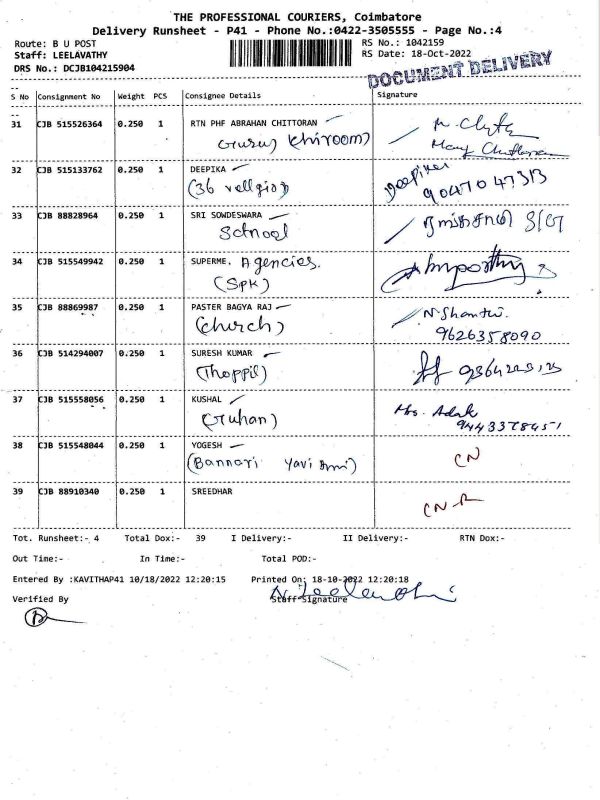 THE PROFESSIONAL COURIERS, Coimbatore
Delivery Runsheet - P41 - Phone No.:0422-3505555 - Page No.:4
Route: B U POST
RS No.: 1042159
Staff: LEELAVATHY
RS Date: 18-Oct-2022
DRS No.: DCJB104215904
DOCUMENT DELIVERY
S No Consignment No Weight PCS Consignee Details Signature
31 CJB 515526364 0.250 1 RTN PHF ABRAHAN CHITTORAN
32 CJB 515133762 0.250 1 DEEPIKA
Deepika
9047047313
33 CJB 88828964 0.250 1 SRI SOWDESWARA
School
34 CJB 515549942 0.250 1 SUPERME. Agencies.
(SPK)
35 CJB 88869987 0.250 1 PASTER BAGYA RAJ
N. Shanthi.
(church)
9626358090
36 CJB 514294007 0.250 1 SURESH KUMAR
(Thoppil)
37 CJB 515558056 0.250 1 KUSHAL
Mrs. Adak
(Guhan)
9443378451
38 CJB 515548044 0.250 1 YOGESH
CN
(Bannari
39 CJB 88910340 0.250 1 SREEDHAR
CN-R
Tot. Runsheet:- 4 Total Dox:- 39 I Delivery:- II Delivery:- RTN Dox:-
Out Time:- In Time:- Total POD:-
Entered By :KAVITHAP41 10/18/2022 12:20:15 Printed On: 18-10-2022 12:20:18
Verified By
Staff Signature